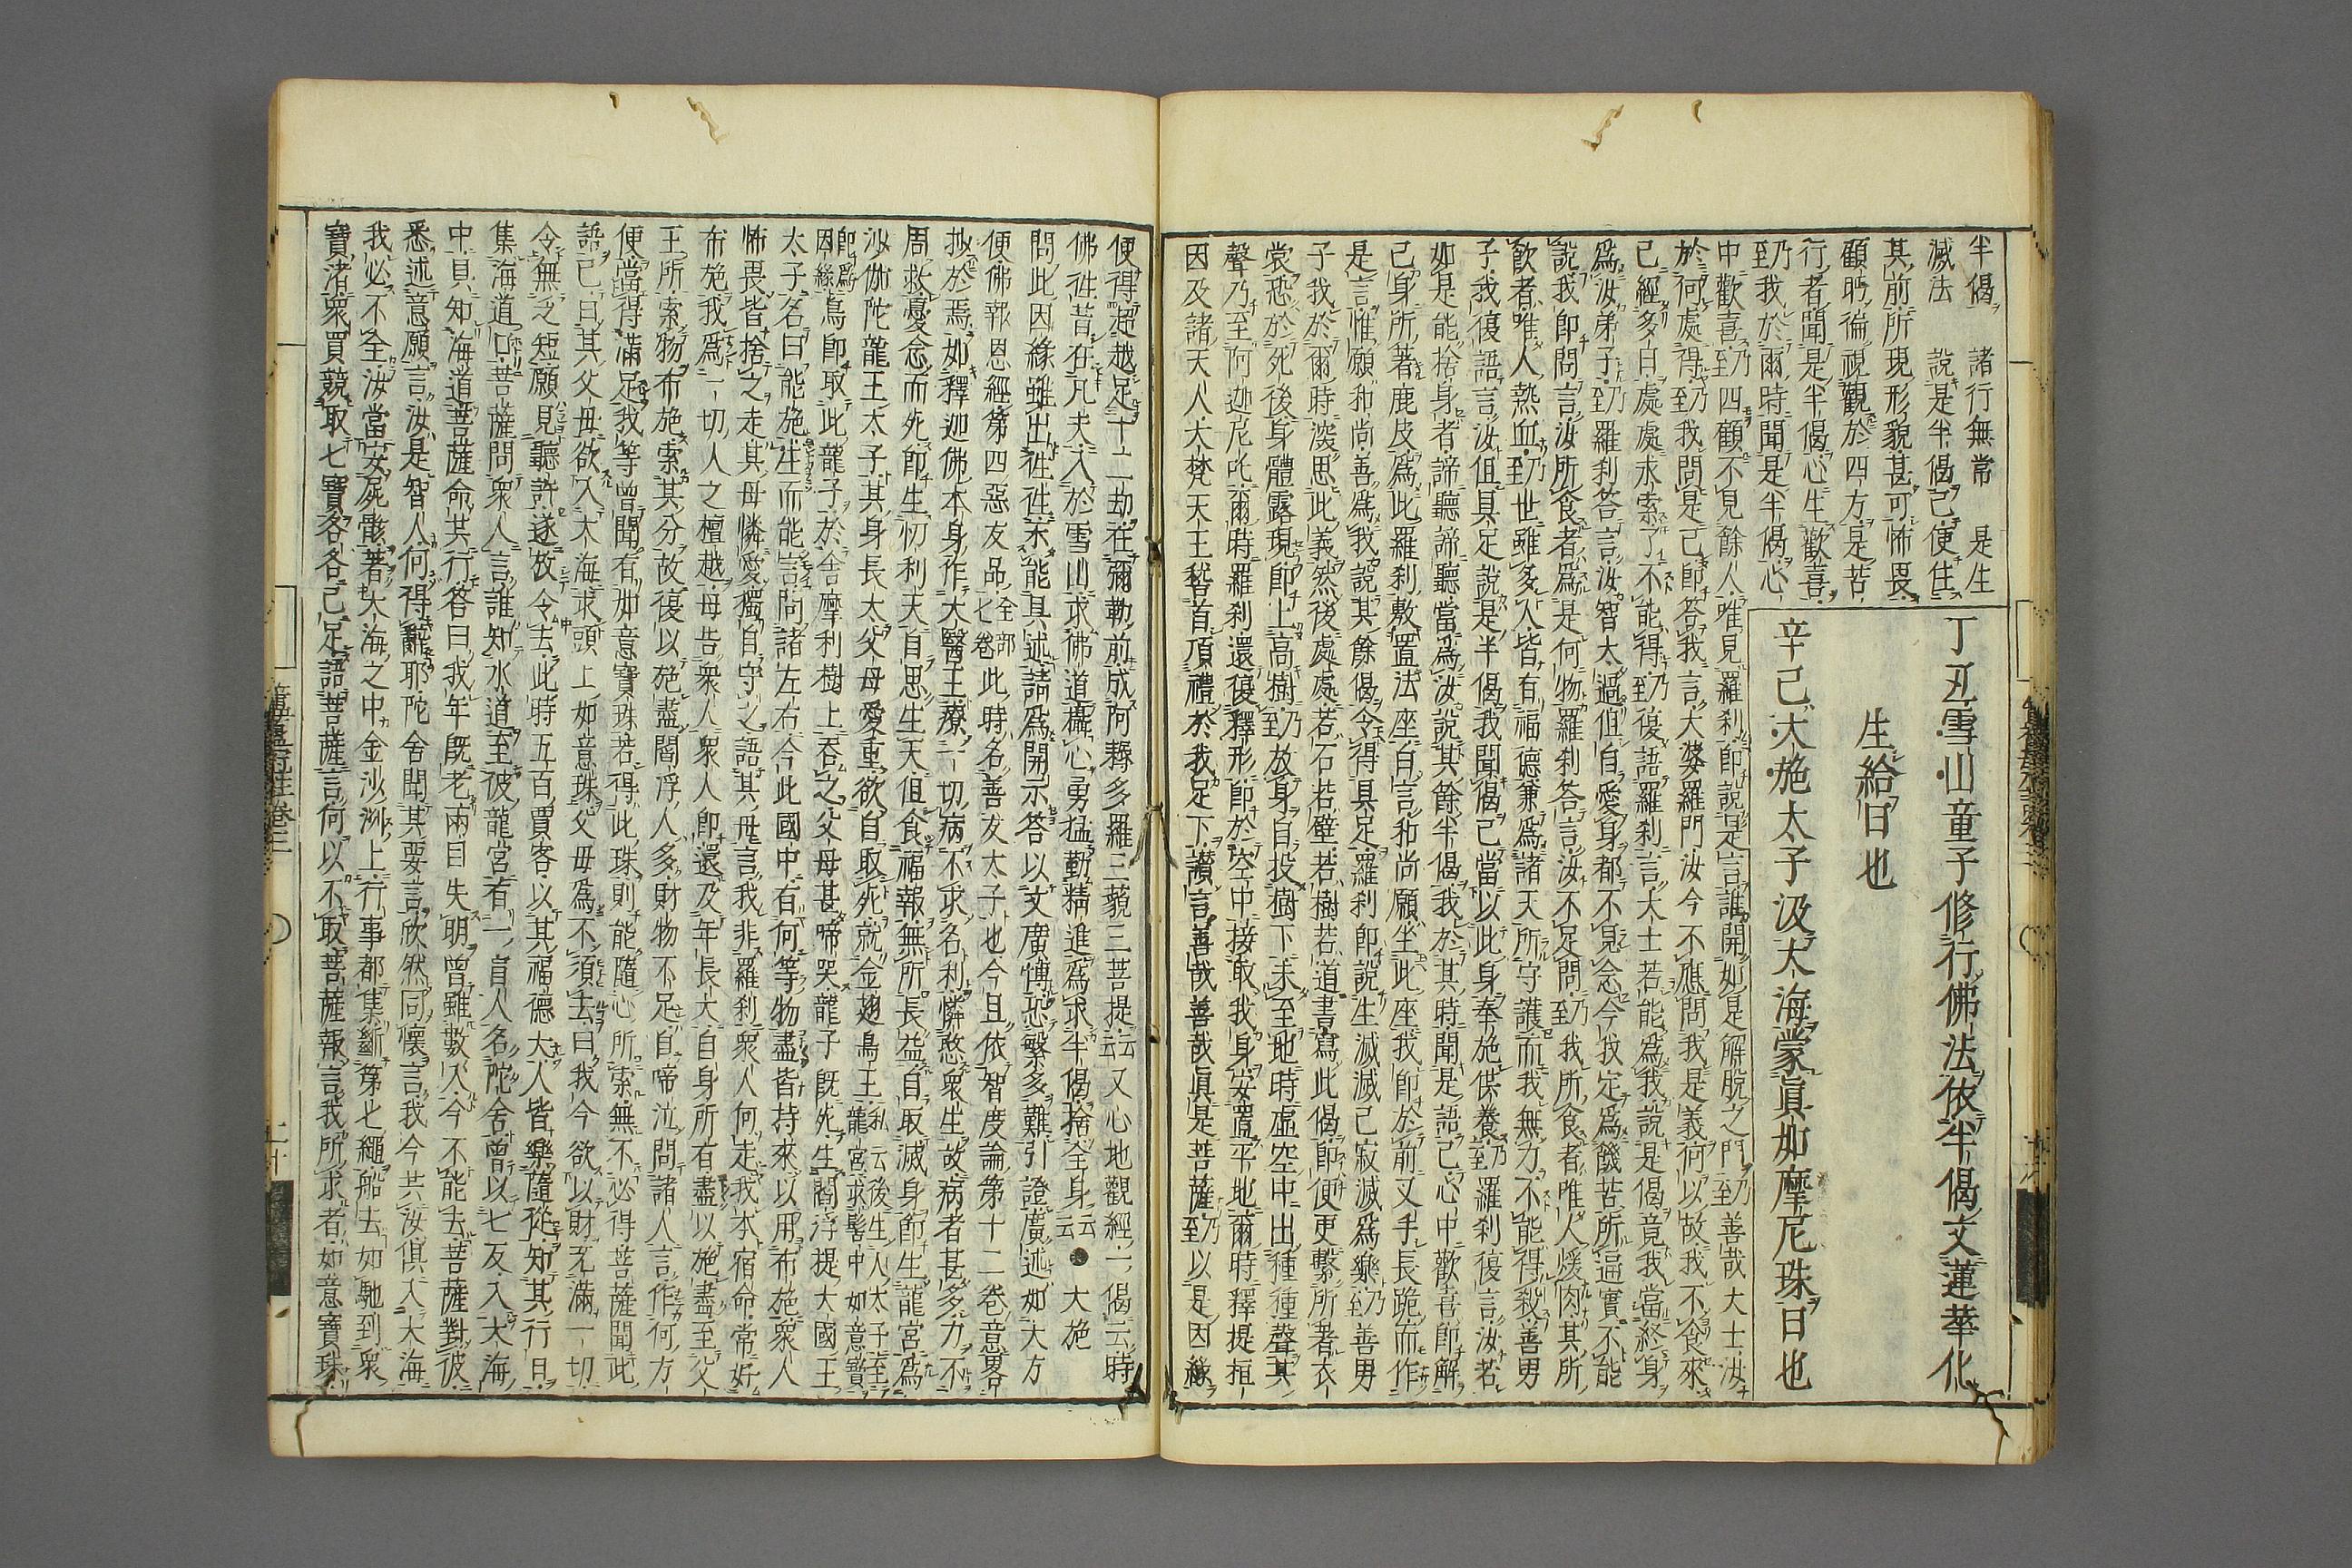 半偈 諸行無常 是生
滅法 說是半偈已便住
其前所現形貌甚可怖畏
顧眄徧視觀於四方是苦
行者聞是半偈心生歡喜
乃至我於爾時聞是半偈心
丁丑雪山童子修行佛法依半偈文蓮華化
生給日也
辛己大施太子汲大海蒙眞如摩尼珠日也
中歡喜乃至四顧不見餘人唯見羅刹即說是言誰開如是解脫之門乃至善哉大士汝
於何處得乃至我問是已即答我言大婆羅門汝今不應問我是義何以故我不食來
已經多日處處求索了不能得乃至復語羅刹言大士若能爲我說是偈竟我當終身
爲汝弟子乃至羅刹答言汝智太過但自愛身都不見念今我定爲饑苦所逼實不能
說我即問言汝所食者爲是何物羅刹答言汝不足問乃至我所食者唯人煖肉其所
飮者唯人熱血乃至世雖多人皆有福德兼爲諸天所守護而我無力不能得殺善男
子我復語言汝但具足說是半偈我聞偈已當以此身奉施供養乃至羅刹復言汝若
如是能捨身者諦聽諦聽當爲汝說其餘半偈我於其時聞是語已心中歡喜即解
己身所著鹿皮爲此羅刹敷置法座白言和尚願坐此座我即於前叉手長跪而作
是言惟願和尚善爲我說其餘偈令得具足羅刹即說生滅滅已寂滅爲樂乃至善男
子我於爾時深思此義然後處處若石若壁若樹若道書寫此偈即便更繫所著衣
裳恐於死後身體露現即上高樹乃至放身自投樹下未至地時虛空中出種種聲其
聲乃至阿迦尼吒爾時羅刹還復釋形即於空中接取我身安置平地爾時釋提桓
因及諸天人大梵天王稽首頂禮於我足下讃言善哉善哉眞是菩薩乃至以是因緣
便得超越足十二劫在彌勒前成阿耨多羅三藐三菩提云云又心地觀經一偈云時
佛徃昔在凡夫入於雪山求佛道攝心勇猛勤精進爲求半偈捨全身云云●大施
問此因緣雖出徃徃未能具述請爲開示答以文廣慱恐繁多難引證廣述如大方
便佛報恩經第四惡友品全部七卷此時名善友太子也今且依智度論第十二卷意畧
抄於焉如釋迦佛本身作大醫王療一切病不求名利憐愍衆生故病者甚多力不
周救憂念而死即生忉利天自思生天但食福報無所長益自取滅身即生龍宮爲
沙伽陀龍王太子其身長大父母愛重欲自取死就金翅鳥王私云後生人太子至龍宮求髻中如意寶
即爲因緣鳥即取此龍子於舍摩利樹上呑之父母甚啼哭龍子既死生閻浮提大國王
太子名曰能施生而能言問諸左右今此國中有何等物盡皆持來以用布施衆人
怖畏皆捨之走其母憐愛獨自守之語其母言我非羅刹衆人何走我本宿命常好
布施我爲一切人之檀越母告衆人衆人即還及年長大自身所有盡以施盡至父
王所索物布施索其分故復以施盡閻浮人多財物不足自啼泣問諸人言作何方
便當得滿足我等曾聞有如意寶珠若得此珠則能隨心所索無不必得菩薩聞此
語已曰其父母欲入大海求頭上如意珠父母爲不須去曰我今欲以財充滿一切
令無乏短願見聽許遂放令去此時五百賈客以其福德大人皆樂隨從知其行日
集海道口菩薩問衆人言誰知水道至彼龍宮有一盲人名陀舍曾以七友入大海
中具知海道菩薩命其行答曰我年既老兩目失明曾雖數入今不能去菩薩對彼
悉述意願言汝是智人何得辭耶陀舍聞其要言欣然同懷言我今共汝俱入大海
我必不全汝當安屍骸著大海之中金沙洲上行事都集斷第七繩船去如馳到衆
寶渚衆買競取七寶各各己足語菩薩言何以不取菩薩報言我所求者如意寶珠